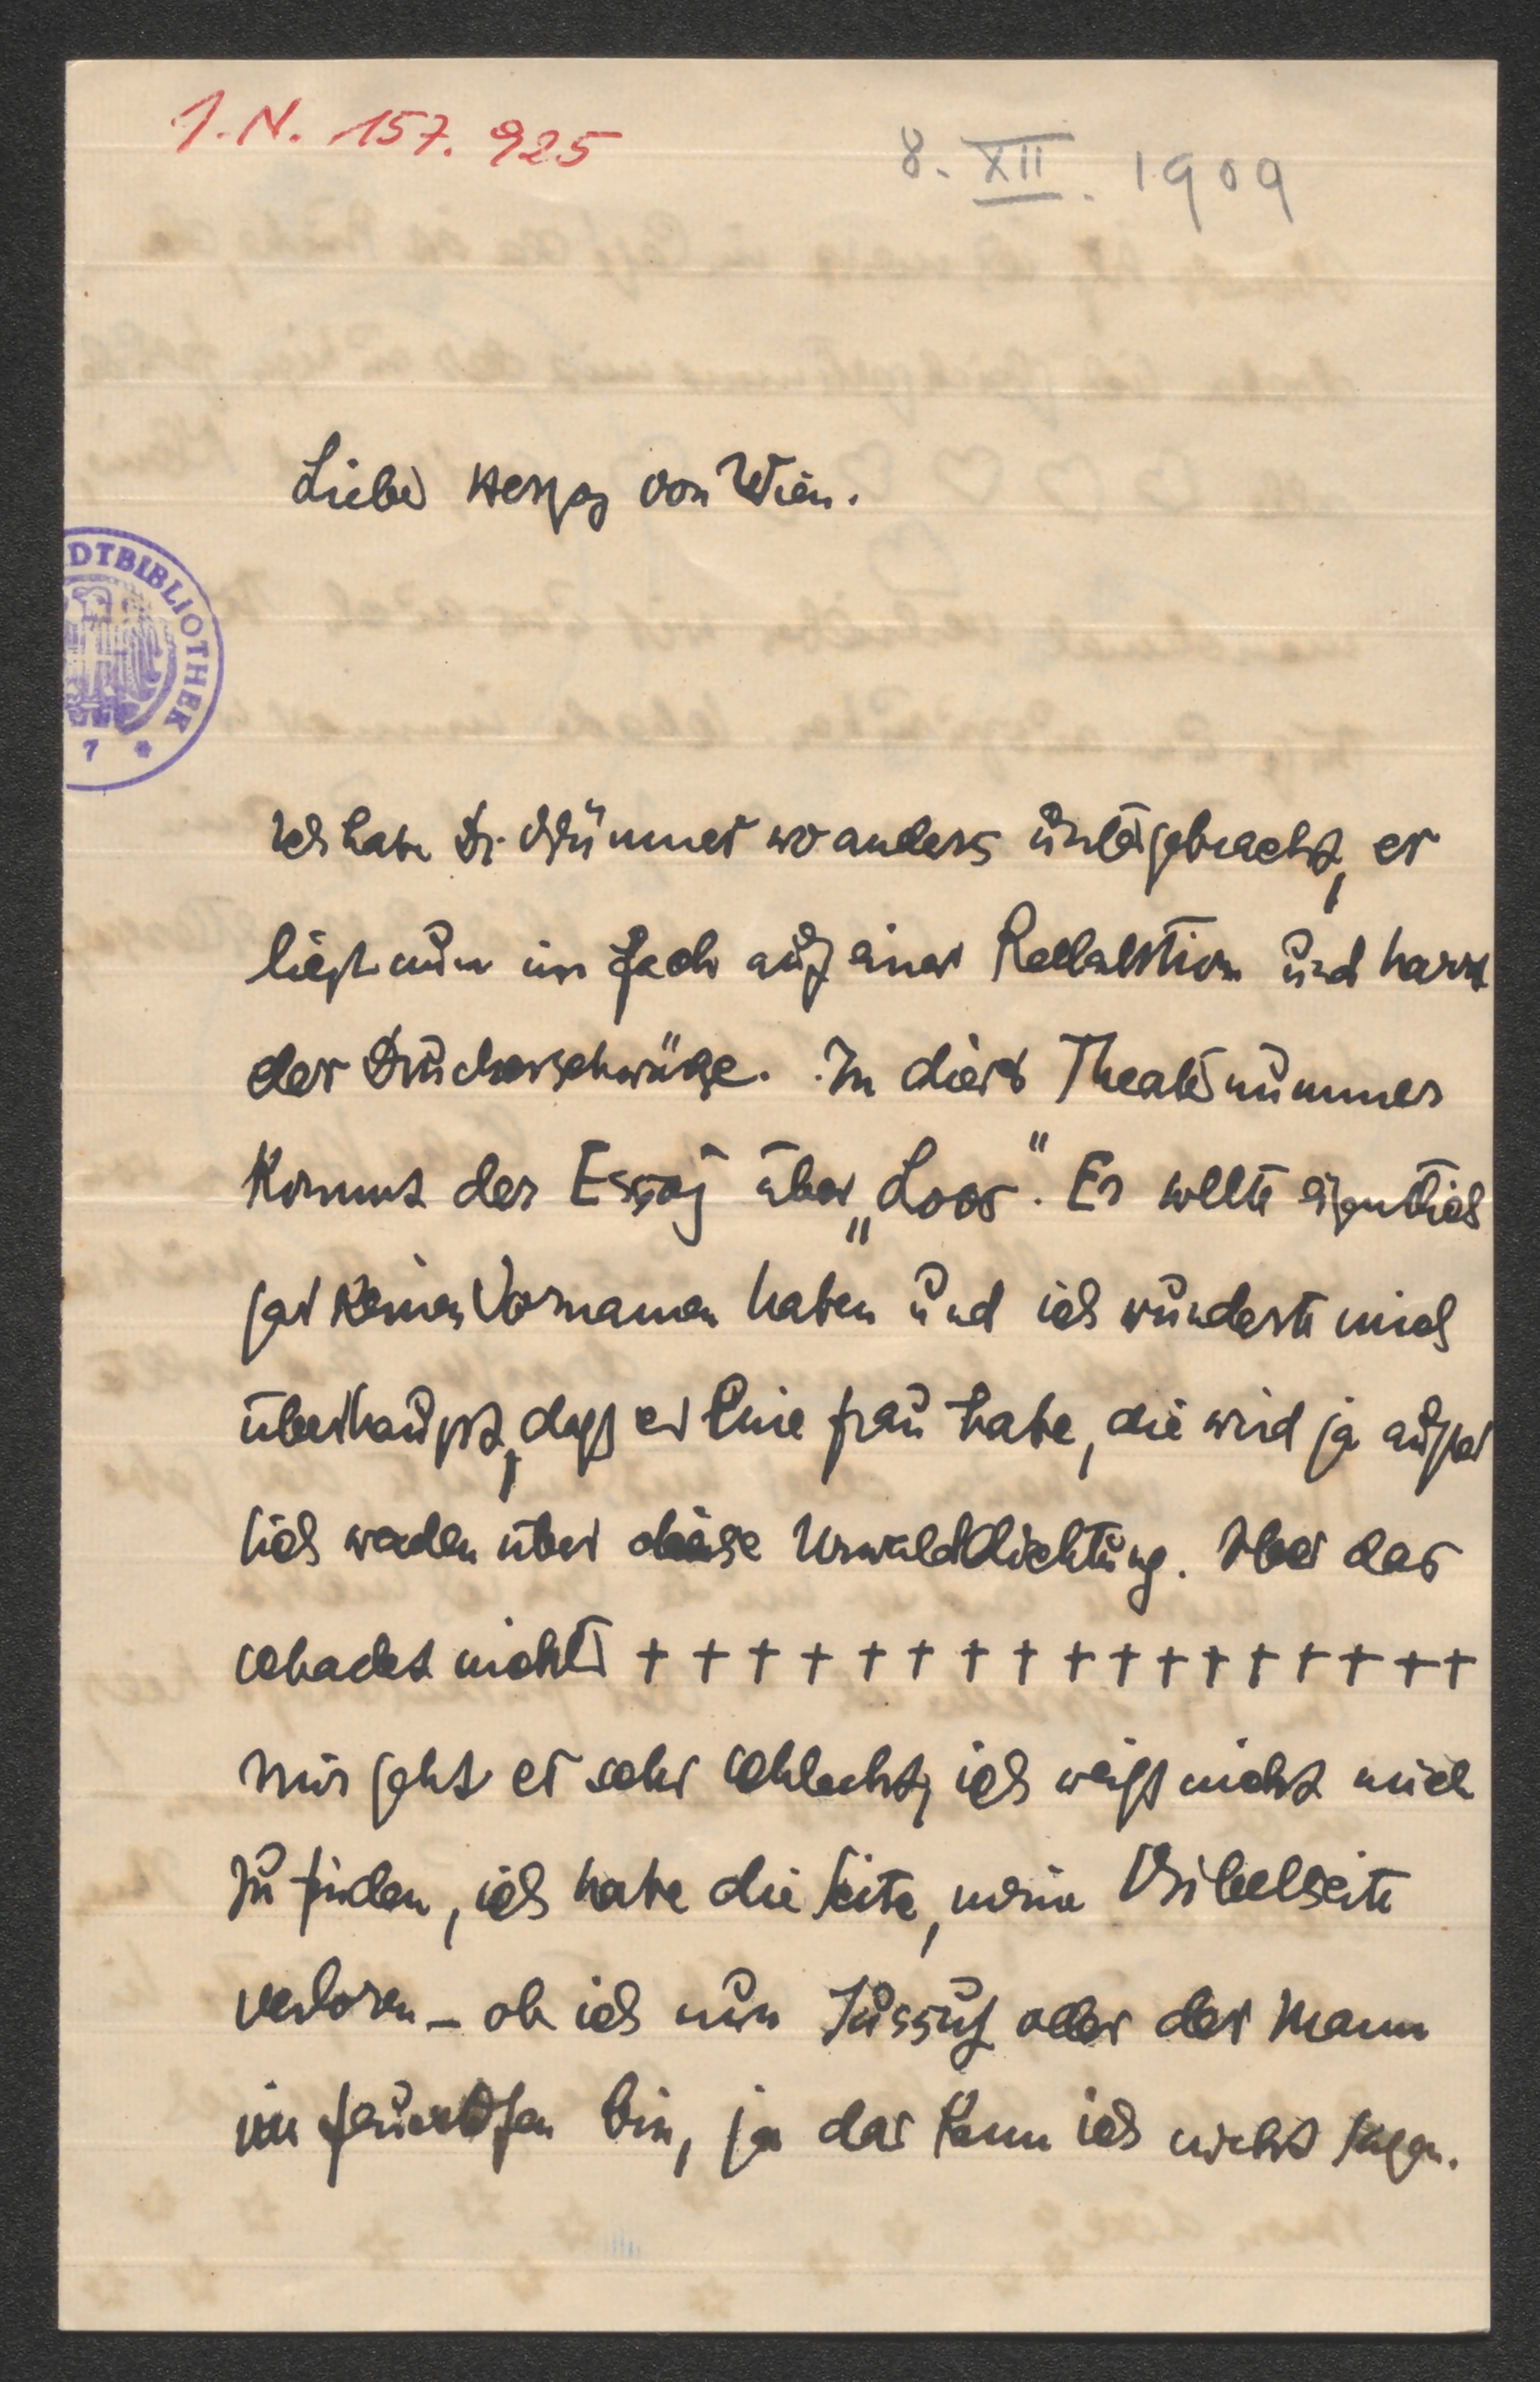 I.N. 157.925
8. XII. 1909
DTBIBLIOTHEK
7 *
Lieber Herzog von Wien.
Ich habe Dr. Wünner wo anders untergebracht, er
liegt nun im Fach auf einer Redaktion und harrt
der Druckerschwärze. In dieser Theaternummer
kommt der Essay über „Loos“. Er wollte eigentlich
gar keinen Vornamen haben und ich wunderte mich
überhaupt, daß er Eine Frau habe, die wird ja außer
sich werden über diese Urwalddichtung. Aber das
schadet nichts + + + + + + + + + + + + + + + + +
Mir geht es sehr schlecht, ich weiß nicht mich
zu finden, ich habe die Seite, meine Bibelseite
verloren – ob ich nun Jussuf oder der Mann
im Feuerofen bin, ja das kann ich nicht sagen.